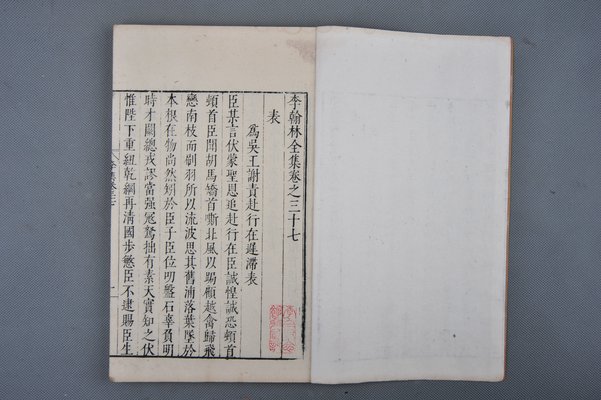 李翰林全集卷之三十七
表
為吳王謝責赴行在遲滯表
臣某言伏蒙聖恩追赴行在臣誠惶誠恐頓首
頓首臣聞胡馬矯首嘶北風以跼顧越禽歸飛
戀南枝而刷羽所以流波思其舊浦落葉墜於
本根在物尚然矧於臣子臣位叨盤石辜負明
時才闕總戎謬當强寇駑拙有素天實知之伏
惟陛下重紐乾綱再清國步愍臣不逮賜臣生